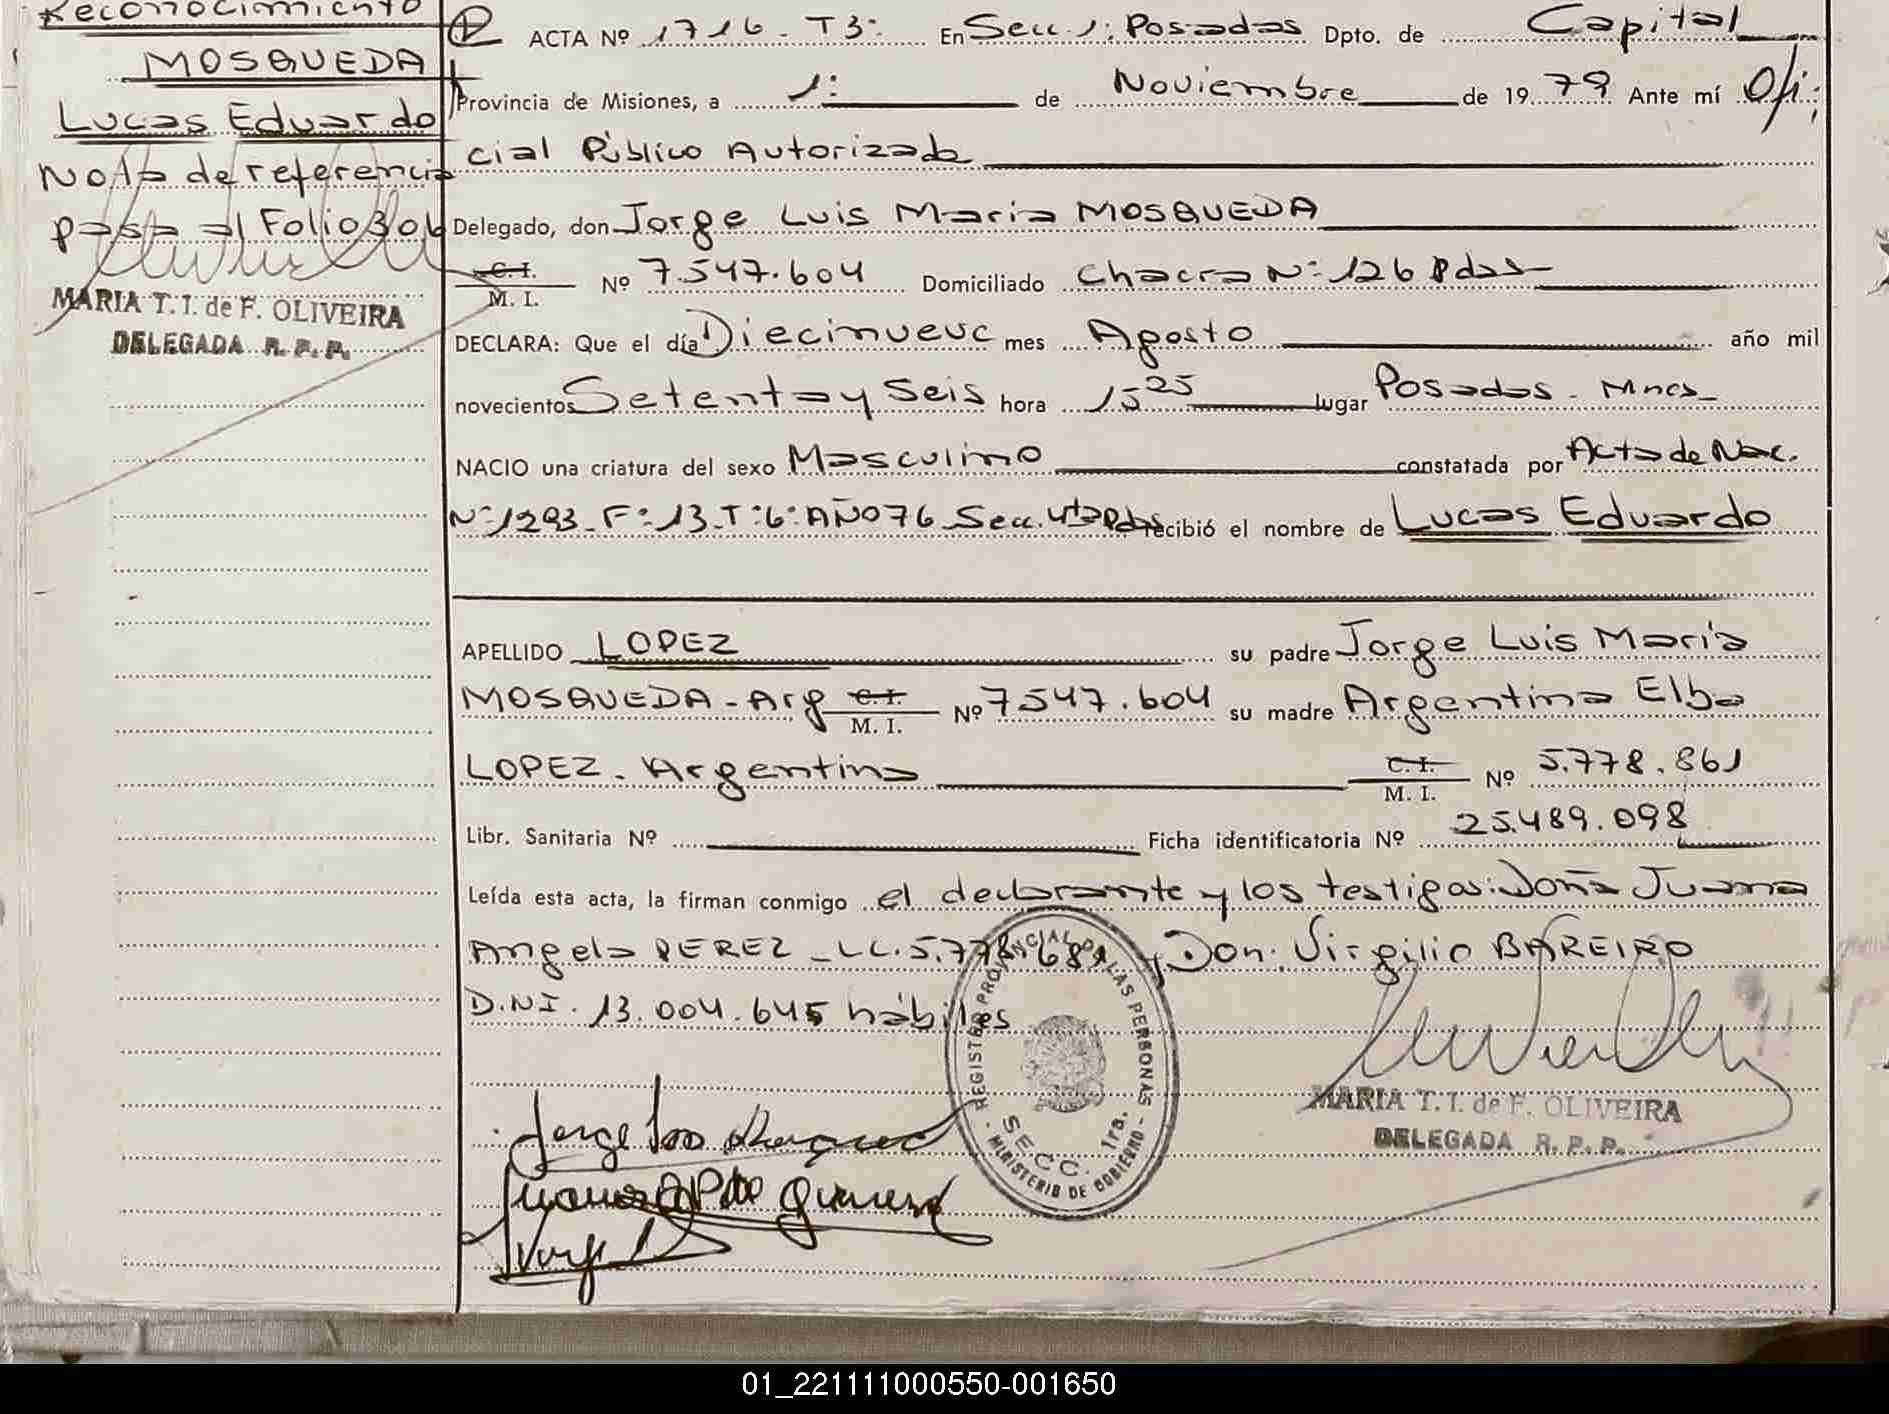 Reconocimiento
MOSQUEDA
Lucas Eduardo
Nota de referencia
pasa al Folio 306
MARIA T. I. de F. OLIVEIRA
DELEGADA R. P. P.
ACTA Nº 1716 - T3: En Secc. 1: Posadas Dpto. de Capital
Provincia de Misiones, a 1: de Noviembre de 1979 Ante mí Ofi:
cial Público Autorizada
Delegado, don Jorge Luis Maria MOSQUEDA
C. I.
M. I. Nº 7.547.604 Domiciliado Chacra Nº: 126 Pdas
DECLARA: Que el día Diecinueve mes Agosto año mil
novecientos Setenta y Seis hora 15 25 lugar Posadas - Mnes
NACIO una criatura del sexo Masculino constatada por Acta de Nac.
Nº: 1293 - Fº: 13 - T: 6: AÑO 76 Secc. 4ta Pdas recibió el nombre de Lucas Eduardo
APELLIDO LOPEZ su padre Jorge Luis María
MOSQUEDA - Arg C. I.
M. I. Nº 7547.604 su madre Argentina Elba
LOPEZ - Argentina C. I.
M. I. Nº 5.778.861
Libr. Sanitaria Nº Ficha identificatoria Nº 25.489.098
Leída esta acta, la firman conmigo el declarante y los testigos: Doña Juana
Angela PEREZ - LC. 5.778.681 y Don: Virgilio BAREIRO
D.N.I. 13.004.645 hábiles
REGISTRO PROVINCIAL DE LAS PERSONAS
SECC. 1ra.
MINISTERIO DE GOBIERNO
MARIA T. I. de F. OLIVEIRA
DELEGADA R. P. P.
Jorge Luis
01_221111000550-001650